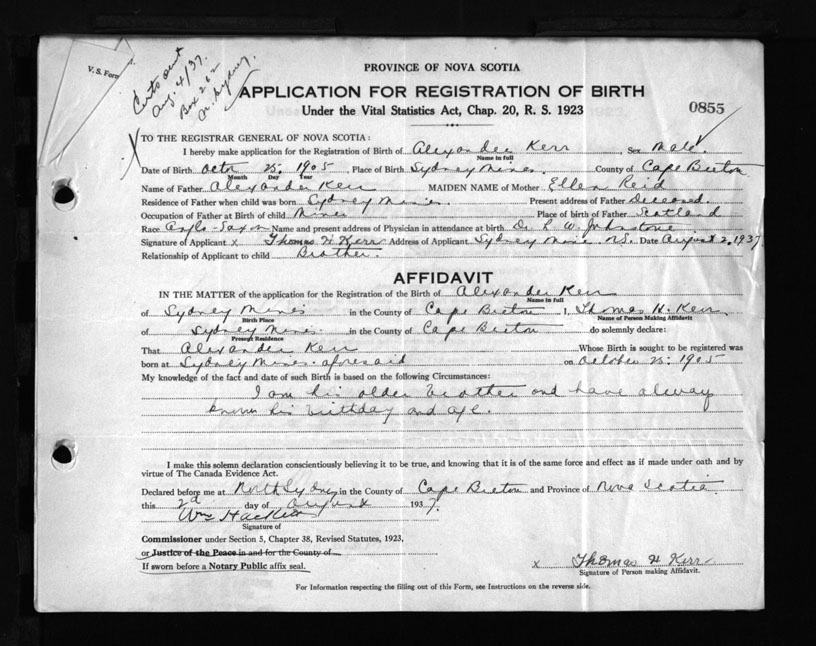 V. S. Form
Certs sent
Aug. 4/37.
Box 262
N. Sydney.
PROVINCE OF NOVA SCOTIA
APPLICATION FOR REGISTRATION OF BIRTH
Under the Vital Statistics Act, Chap. 20, R. S. 1923
0855
TO THE REGISTRAR GENERAL OF NOVA SCOTIA:
I hereby make application for the Registration of Birth of Alexander Kerr Sex Male
Name in full
Date of Birth Octr 25. 1905 Place of Birth Sydney Mines. County of Cape Breton
Month Day Year
Name of Father Alexander Kerr MAIDEN NAME of Mother Ellen Reid
Residence of Father when child was born Sydney Mines. Present address of Father Deceased.
Occupation of Father at Birth of child Miner Place of birth of Father Scotland
Race Anglo-Saxon Name and present address of Physician in attendance at birth Dr. L W. Johnstone
Signature of Applicant x Thomas H Kerr Address of Applicant Sydney Mines. N.S. Date August 2, 1937
Relationship of Applicant to child Brother.
AFFIDAVIT
IN THE MATTER of the application for the Registration of the Birth of Alexander Kerr
Name in full
of Sydney Mines in the County of Cape Breton I, Thomas H. Kerr
Birth Place Name of Person Making Affidavit
of Sydney Mines. in the County of Cape Breton do solemnly declare:
Present Residence
That Alexander Kerr Whose Birth is sought to be registered was
born at Sydney Mines. aforesaid on October 25. 1905
My knowledge of the fact and date of such Birth is based on the following Circumstances:
I am his older brother and have alway
known his birthday and age.
I make this solemn declaration conscientiously believing it to be true, and knowing that it is of the same force and effect as if made under oath and by
virtue of The Canada Evidence Act.
Declared before me at North Sydney in the County of Cape Breton and Province of Nova Scotia
this 2d day of August 1937.
Wm Hackett
Signature of
Commissioner under Section 5, Chapter 38, Revised Statutes, 1923,
or Justice of the Peace in and for the County of
If sworn before a Notary Public affix seal.
x Thomas H Kerr
Signature of Person making Affidavit.
For Information respecting the filling out of this Form, see Instructions on the reverse side.